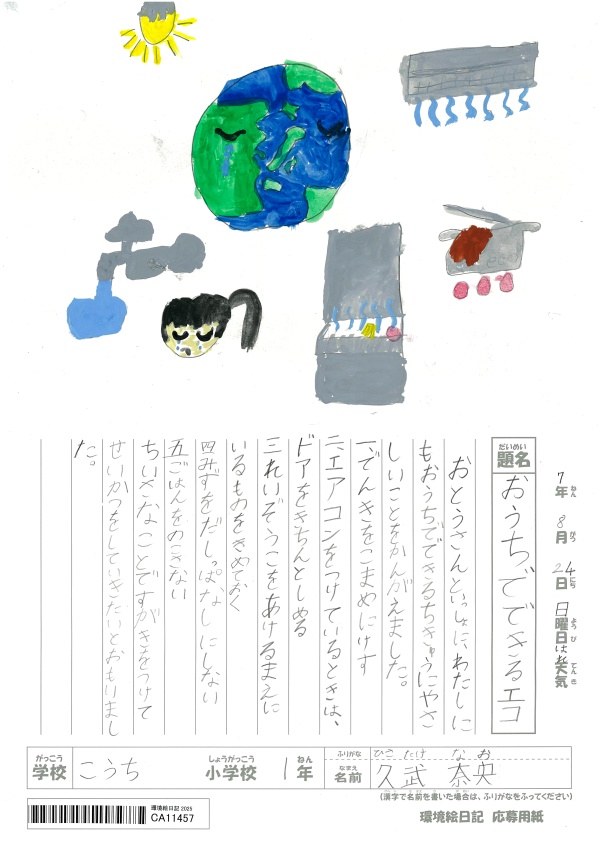 7年 8月 24日 日曜日 天気 はれ
ねん がつ にち ようび てんき
だいめい
題名 おうちでできるエコ
おとうさんといっしょに、わたしに
もおうちでできるちきゅうにやさ
しいことをかんがえました。
一でんきをこまめにけす
二、エアコンをつけているときは、
ドアをきちんとしめる
三れいぞうこをあけるまえに
いるものをきめておく
四みずをだしっぱなしにしない
五ごはんをのこさない
ちいさなことですがきをつけて
せいかつをしていきたいとおもいまし
た。
がっこう しょうがっこう ねん ふりがな ひさ たけ な お
学校 こうち 小学校 1年 なまえ 名前 久武 奈央
(漢字で名前を書いた場合は、ふりがなをふってください)
環境絵日記 2025
CA11457
環境絵日記 応募用紙